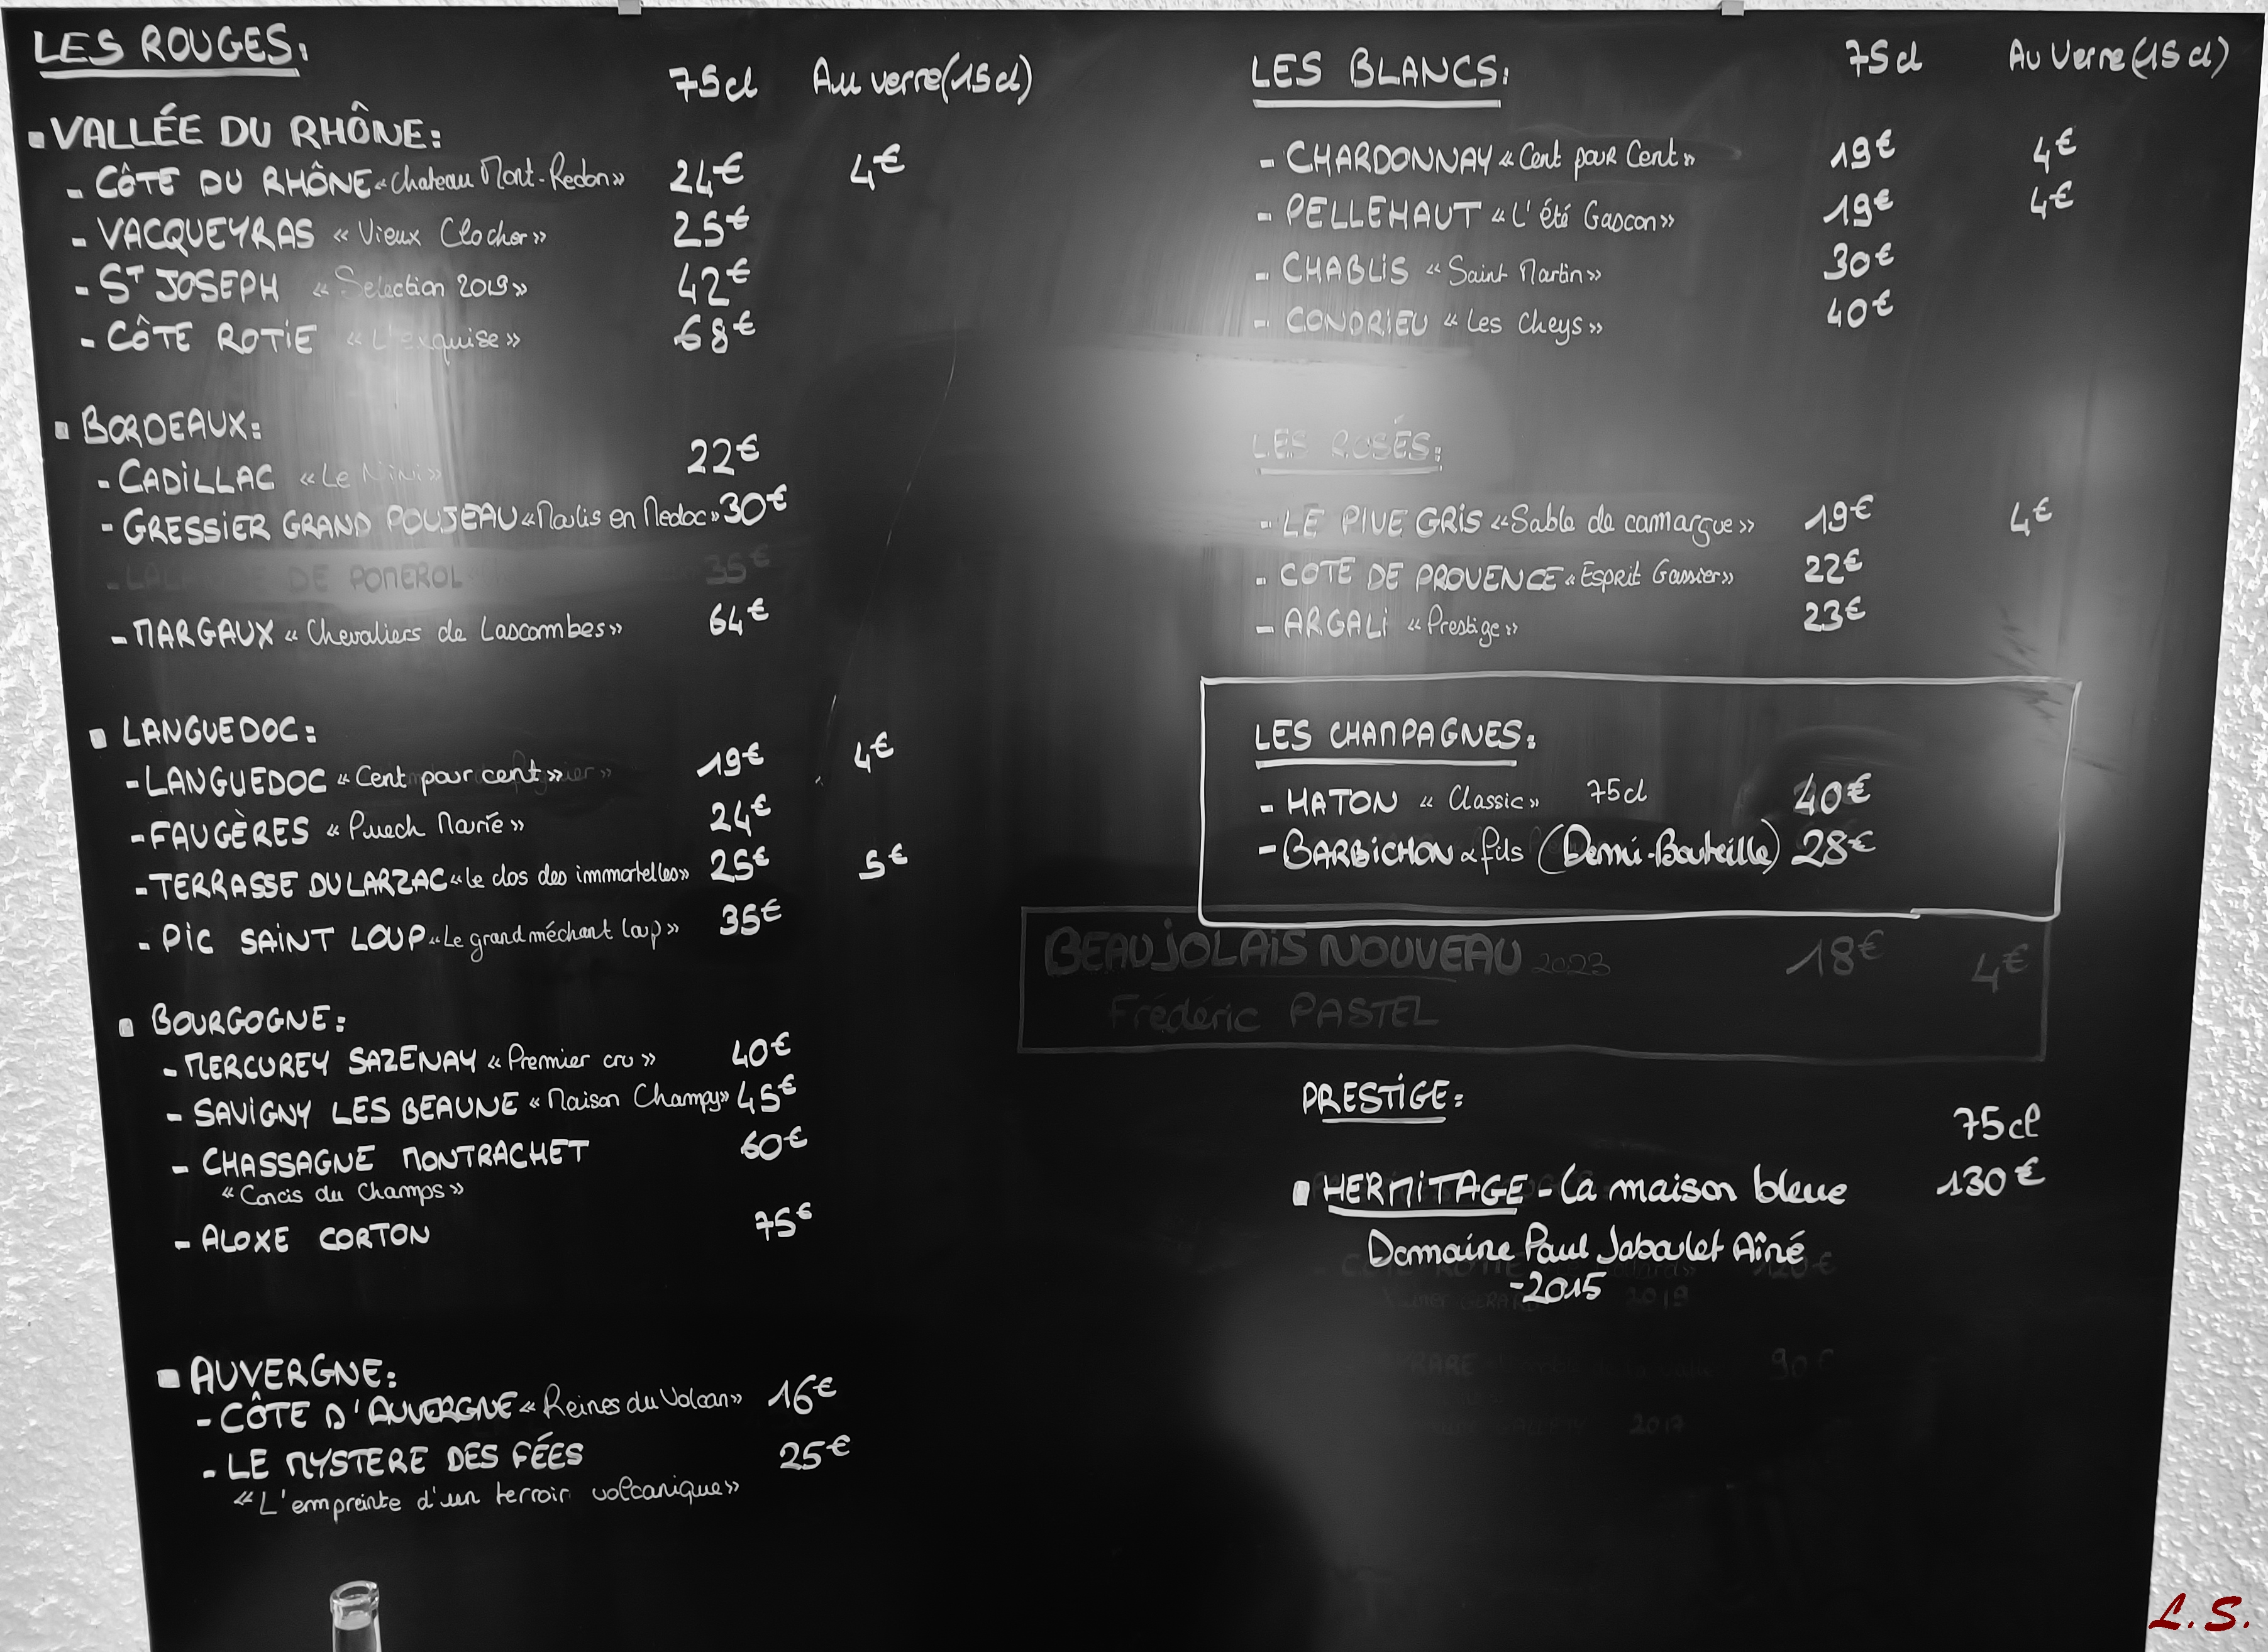 LES ROUGES:
75cl Au verre (15cl)
▪ VALLÉE DU RHÔNE:
- CÔTE DU RHÔNE «Chateau Mont-Redon» 24€ 4€
- VACQUEYRAS «Vieux Clocher» 25€
- ST JOSEPH «Selection 2019» 42€
- CÔTE ROTIE «L'exquise» 68€
▪ BORDEAUX:
- CADILLAC «Le Nini» 22€
- GRESSIER GRAND POUJEAU «Moulis en Medoc» 30€
DE POMEROL 35€
- MARGAUX «Chevaliers de Lascombes» 64€
▪ LANGUEDOC:
- LANGUEDOC «Cent pour cent» 19€ 4€
- FAUGÈRES «Puech Marie» 24€
- TERRASSE DU LARZAC «le clos des immortelles» 25€ 5€
- PIC SAINT LOUP «Le grand méchant loup» 35€
▪ BOURGOGNE:
- MERCUREY SAZENAY «Premier cru» 40€
- SAVIGNY LES BEAUNE «Maison Champy» 45€
- CHASSAGNE MONTRACHET 60€
«Concis du Champs»
- ALOXE CORTON 75€
▪ AUVERGNE:
- CÔTE D'AUVERGNE «Reines du Volcan» 16€
- LE MYSTERE DES FÉES 25€
«L'empreinte d'un terroir volcanique»
LES BLANCS: 75cl Au Verre (15cl)
- CHARDONNAY «Cent pour Cent» 19€ 4€
- PELLEHAUT «L'été Gascon» 19€ 4€
- CHABLIS «Saint Martin» 30€
- CONDRIEU «Les Cheys» 40€
LES ROSÉS:
- LE PIVE GRIS «Sable de camargue» 19€ 4€
- COTE DE PROVENCE «Esprit Gassier» 22€
- ARGALI «Prestige» 23€
LES CHAMPAGNES:
- HATON «Classic» 75cl 40€
- BARBICHON & fils (Demi-Bouteille) 28€
BEAUJOLAIS NOUVEAU 2023 18€ 4€
Frédéric PASTEL
PRESTIGE:
75cl
▪ HERMITAGE - La maison bleue 130€
Domaine Paul Jaboulet Aîné
-2015
2019
90€
2017
L.S.